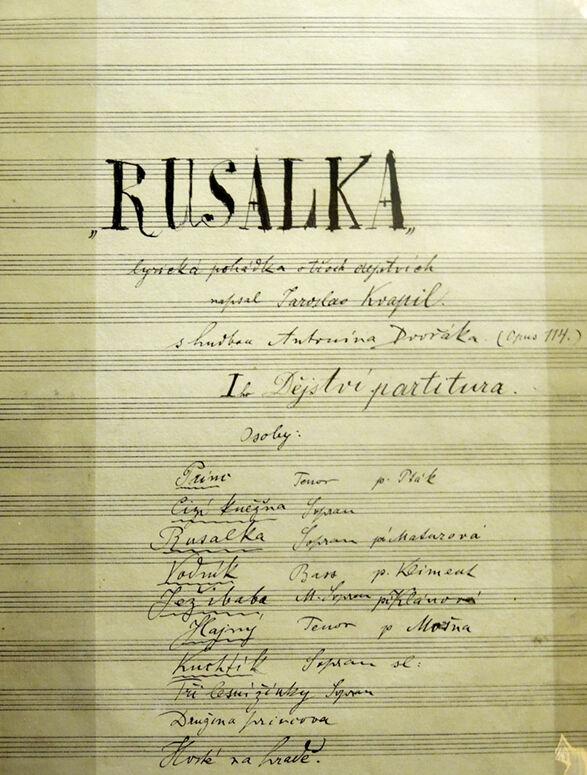 „RUSALKA„
lyrická pohádka o třech dějstvích
napsal Jaroslav Kvapil.
s hudbou Antonína Dvořáka. (Opus 114.)
Iho Dějství partitura.
Osoby:
Princ Tenor p. Pták
Cizí kněžna Sopran
Rusalka Sopran pí Maturová
Vodník Bass p. Kliment
Ježibaba M. Sopran
Hajný Tenor p Mošna
Kuchtík Sopran sl:
Tři lesní žínky Sopran
Družina princova
Hosté na hradě.